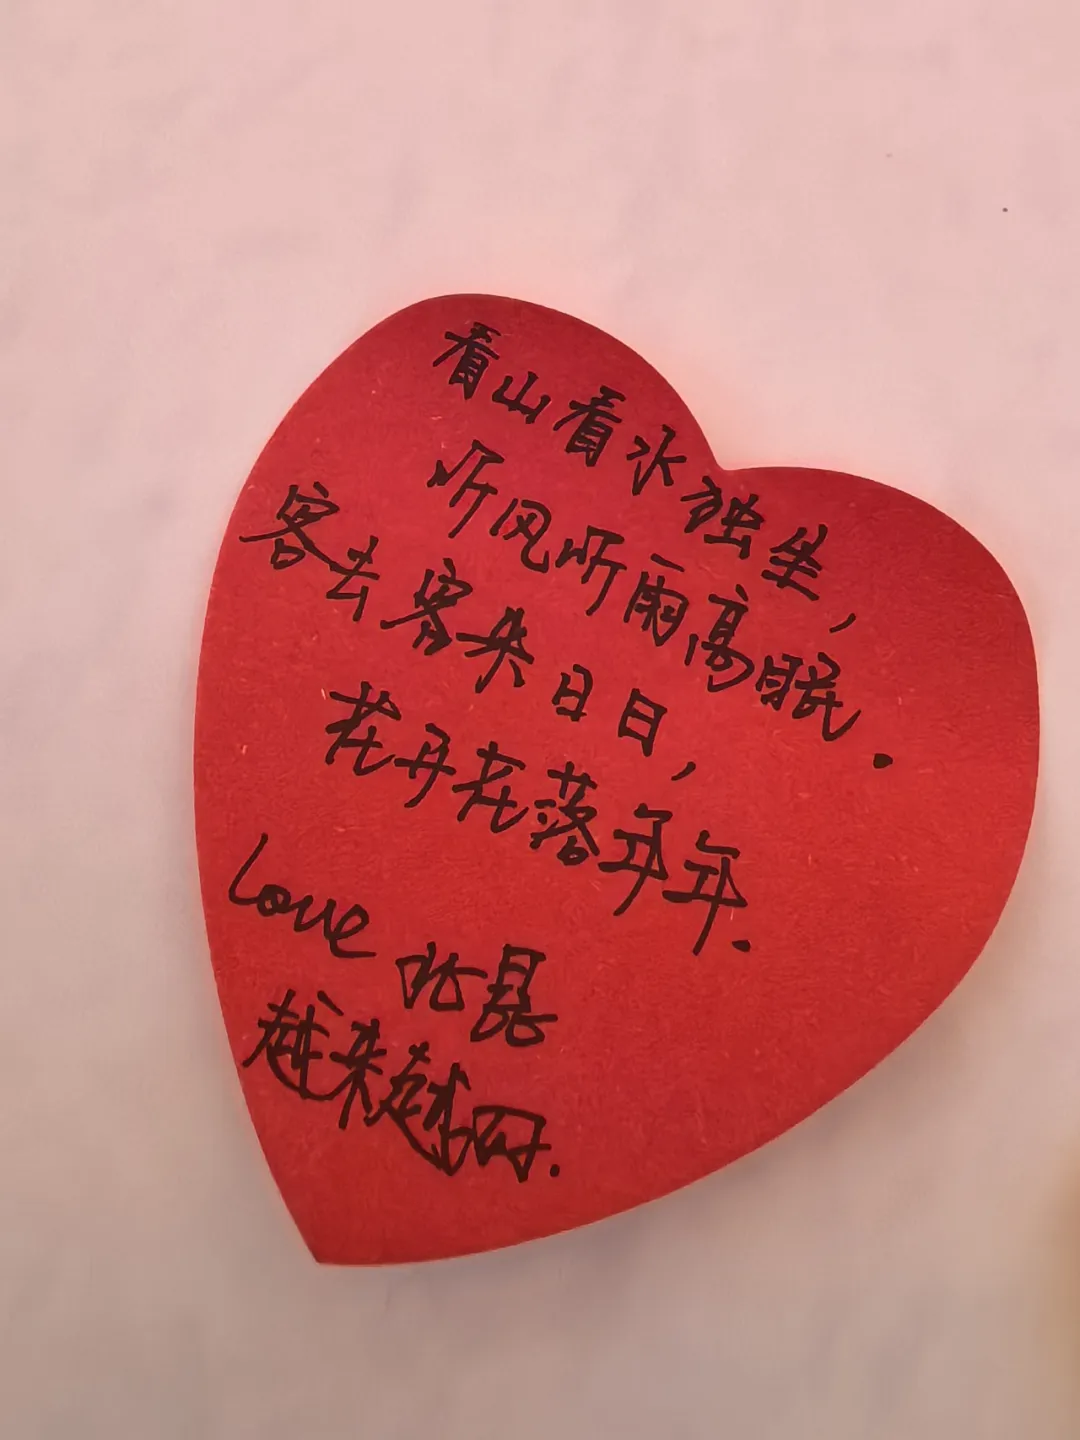 看山看水独坐,
听风听雨高眠.
客去客来日日,
花开花落年年.
Love 北昆
越来越